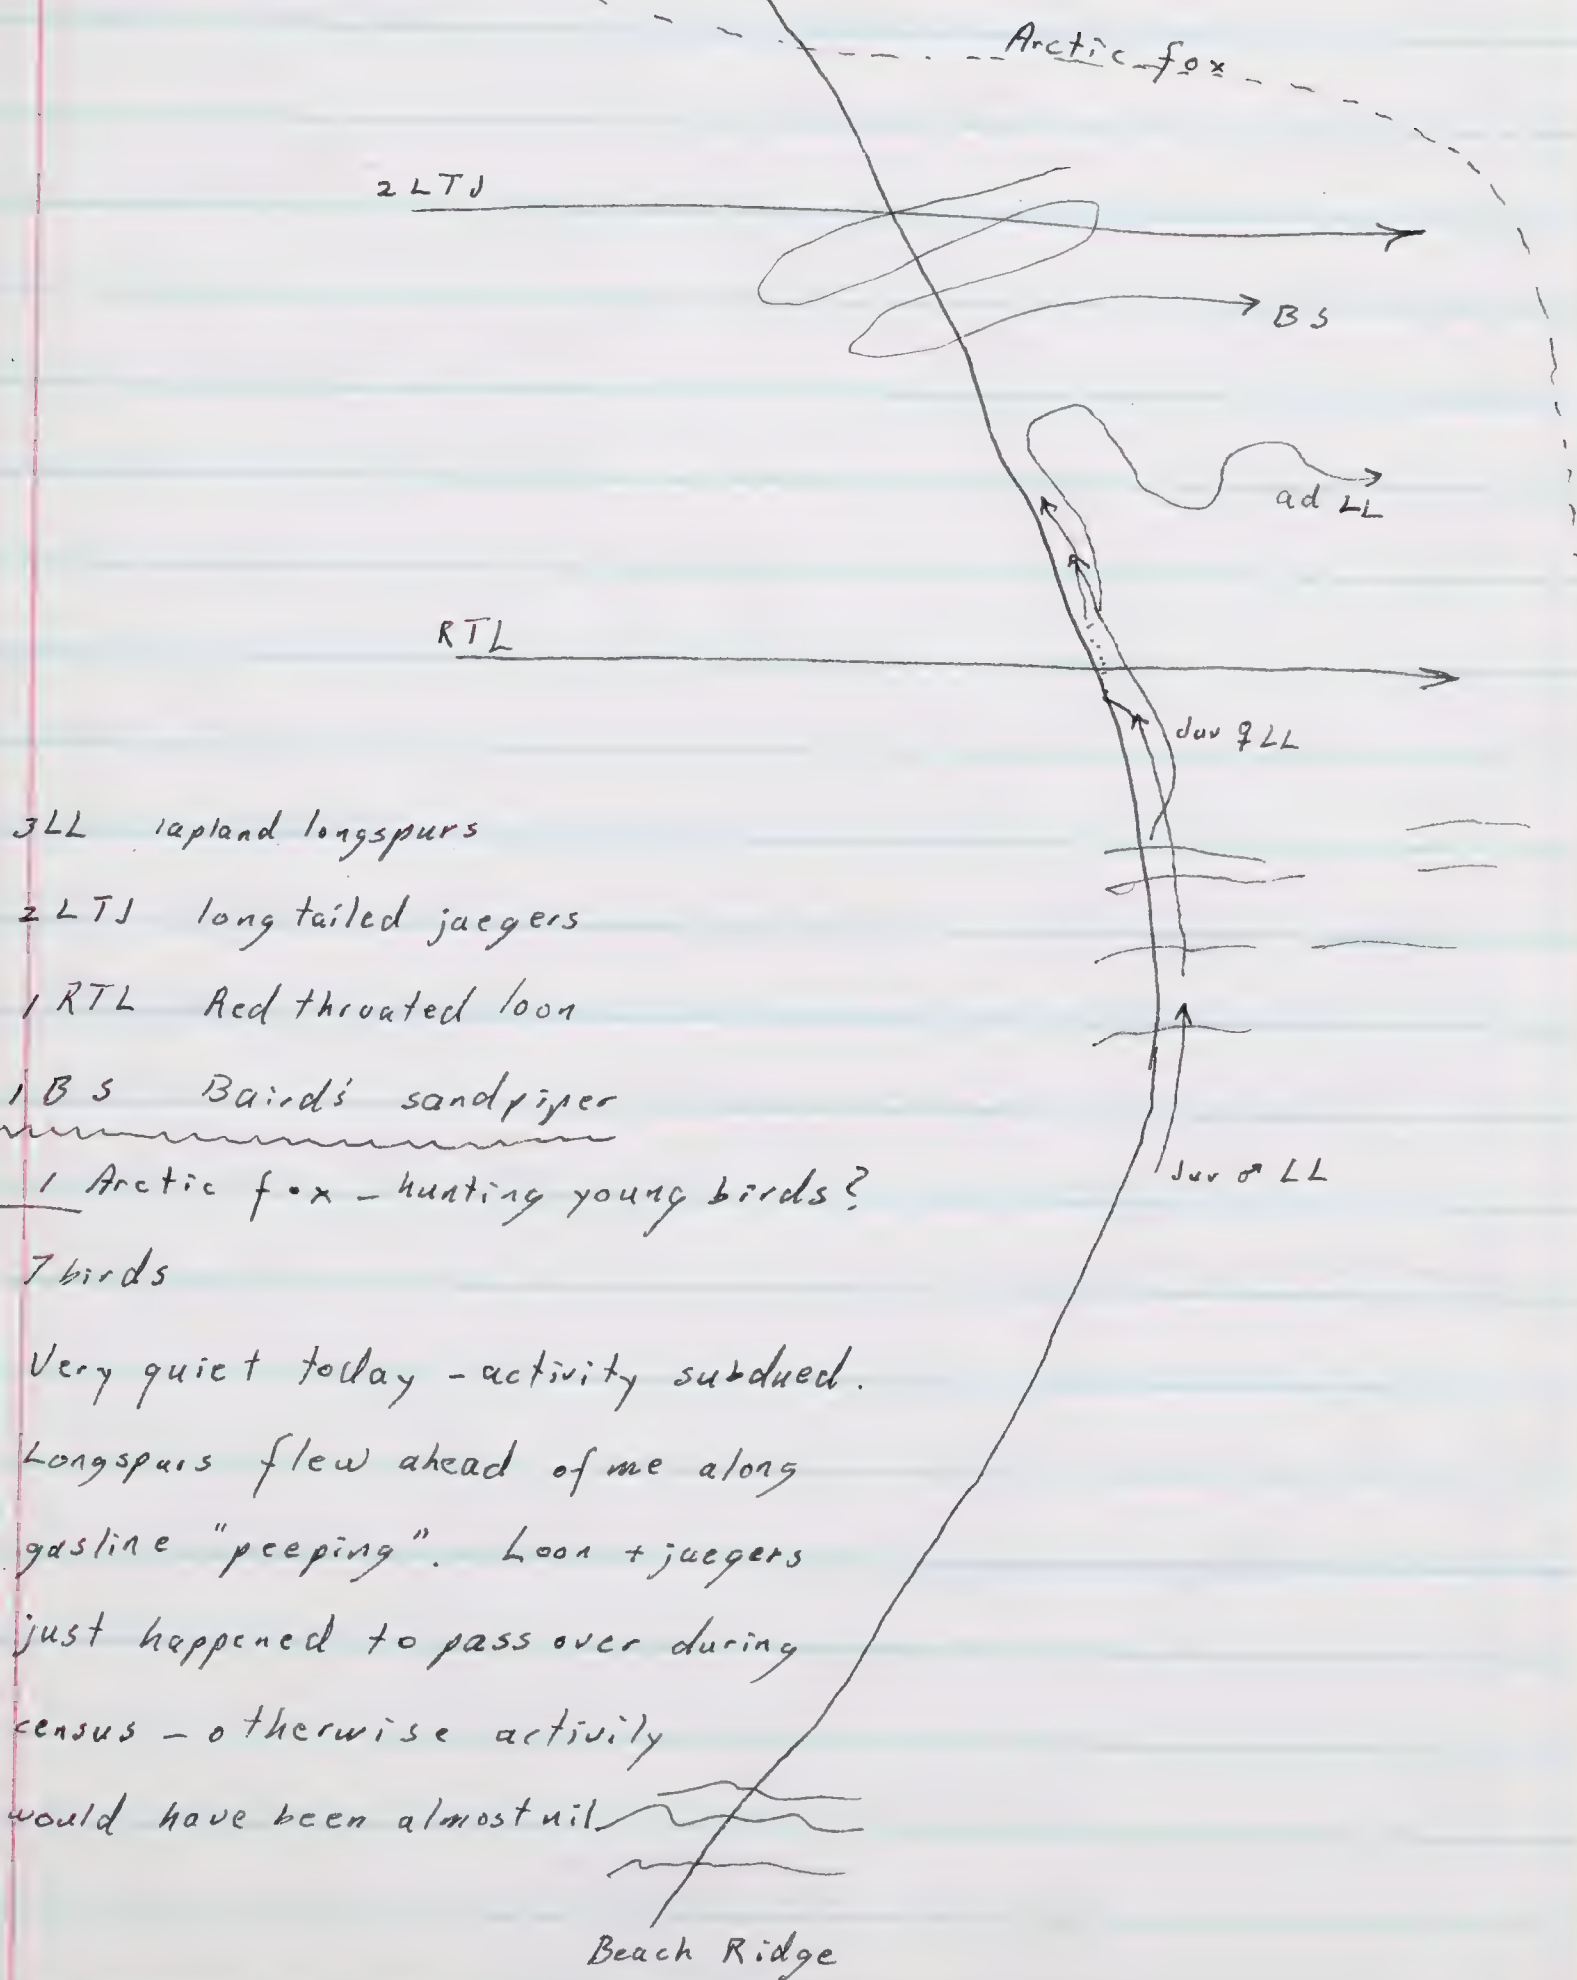 Arctic fox
2 LTJ
BS
ad LL
RTL
Juv ♀ LL
3LL lapland longspurs
2 LTJ long tailed jaegers
1 RTL Red throated loon
1 BS Baird's sandpiper
Juv ♂ LL
1 Arctic fox - hunting young birds?
7 birds
Very quiet today - activity subdued.
Longspurs flew ahead of me along
gasline "peeping". Loon + jaegers
just happened to pass over during
census - otherwise activity
would have been almost nil
Beach Ridge